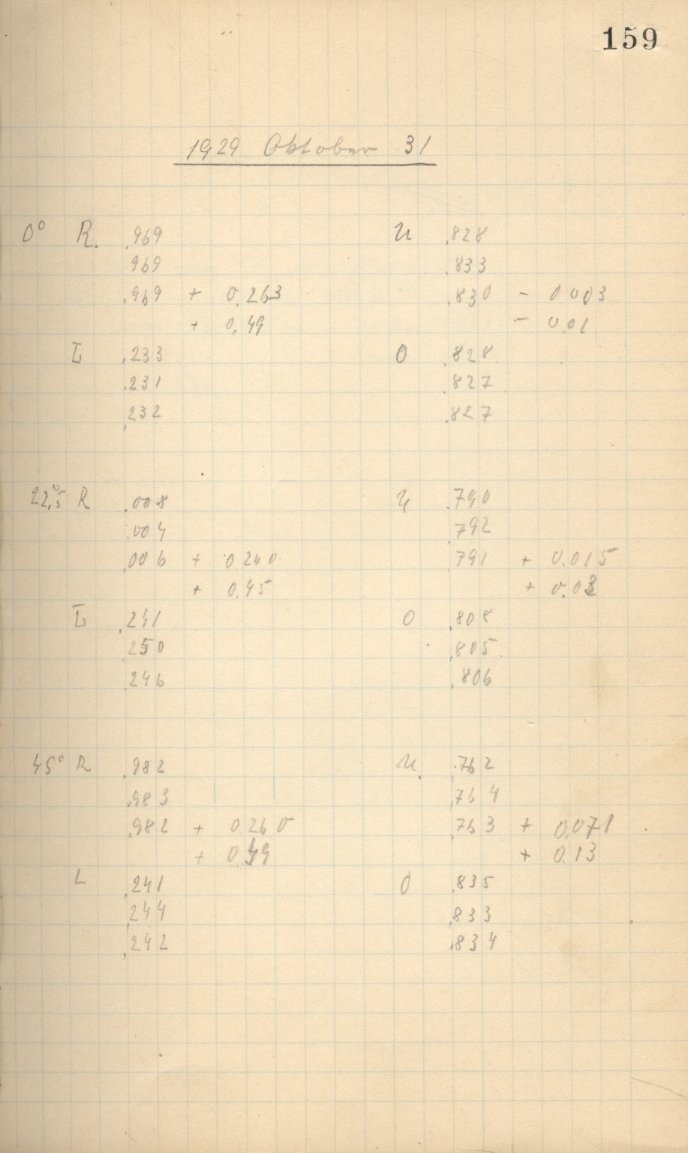 159
1929 Oktober 31
0° R. .969 U .828
.969 .833
.969 + 0.263 .830 - 0.003
+ 0.49 - 0.01
L .233 O .828
.231 .827
.232 .827
22.5° R .008 U .790
.004 .792
.006 + 0.240 .791 + 0.015
+ 0.45 + 0.03
L .241 O .808
.250 .805
.246 .806
45° R .982 U .762
.983 .764
.982 + 0.260 .763 + 0.071
+ 0.49 + 0.13
L .241 O .835
.244 .833
.242 .834